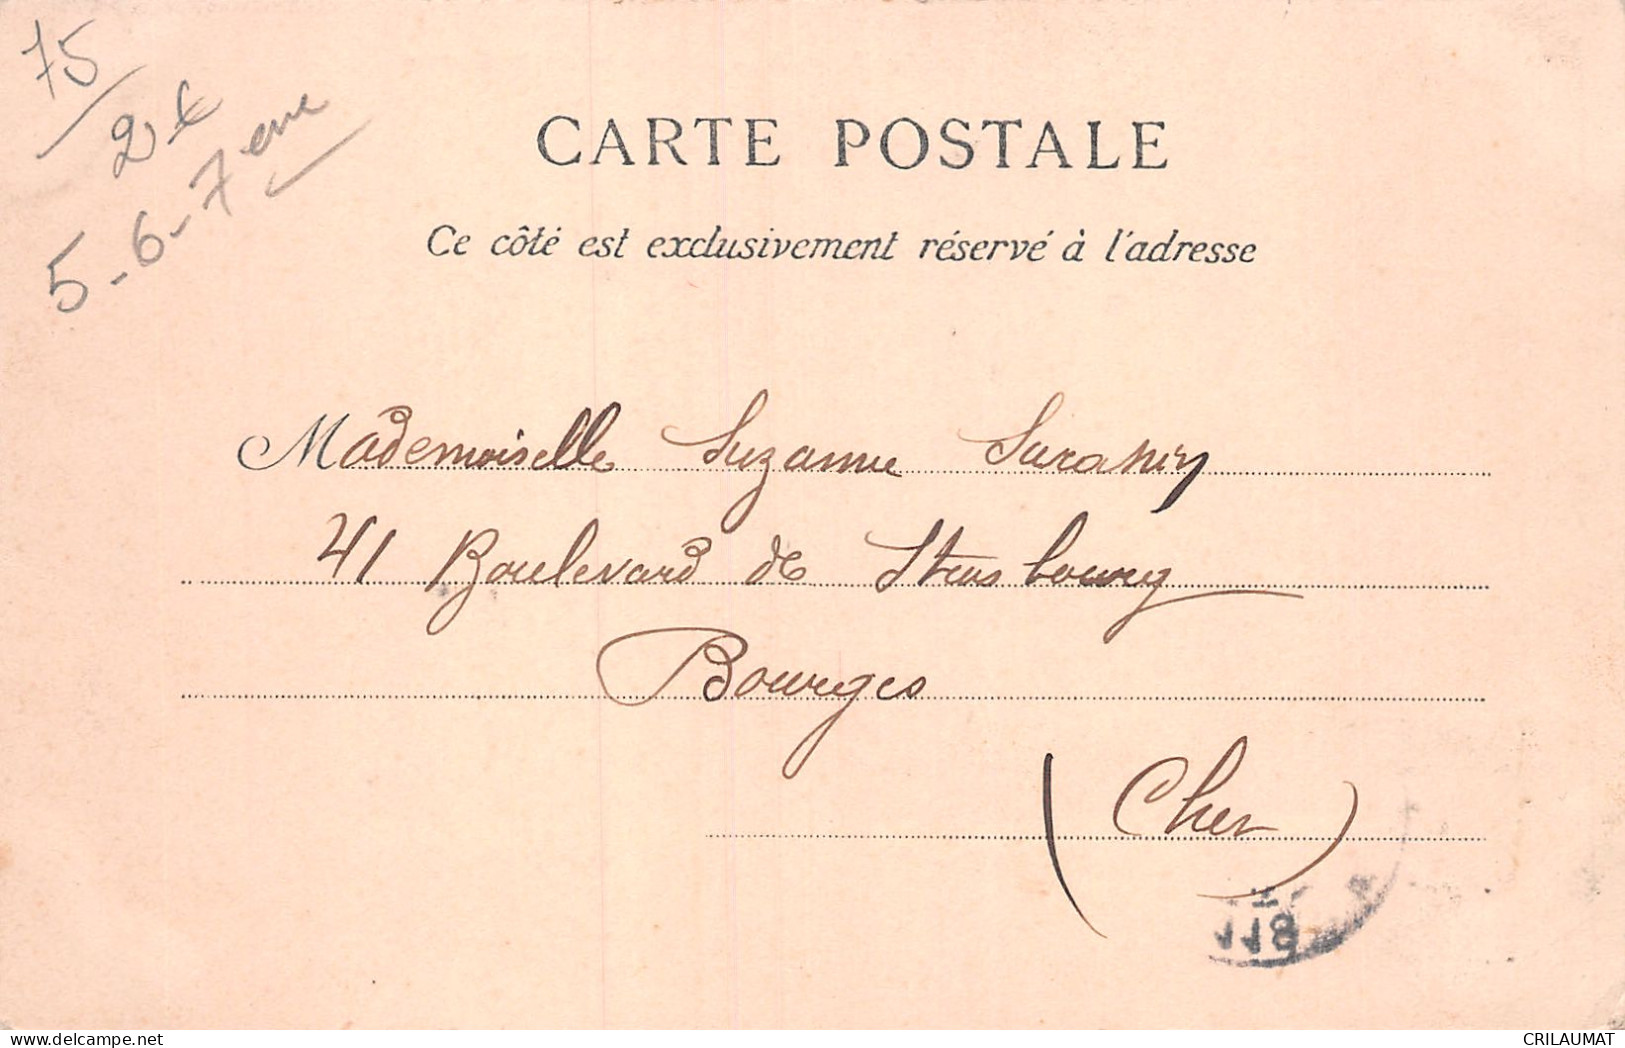 75
2€
5-6-7eme
CARTE POSTALE
Ce côté est exclusivement réservé à l'adresse
Mademoiselle Suzanne
41 Boulevard de Strasbourg
Bourges
(Cher)
118
CRILAUMAT